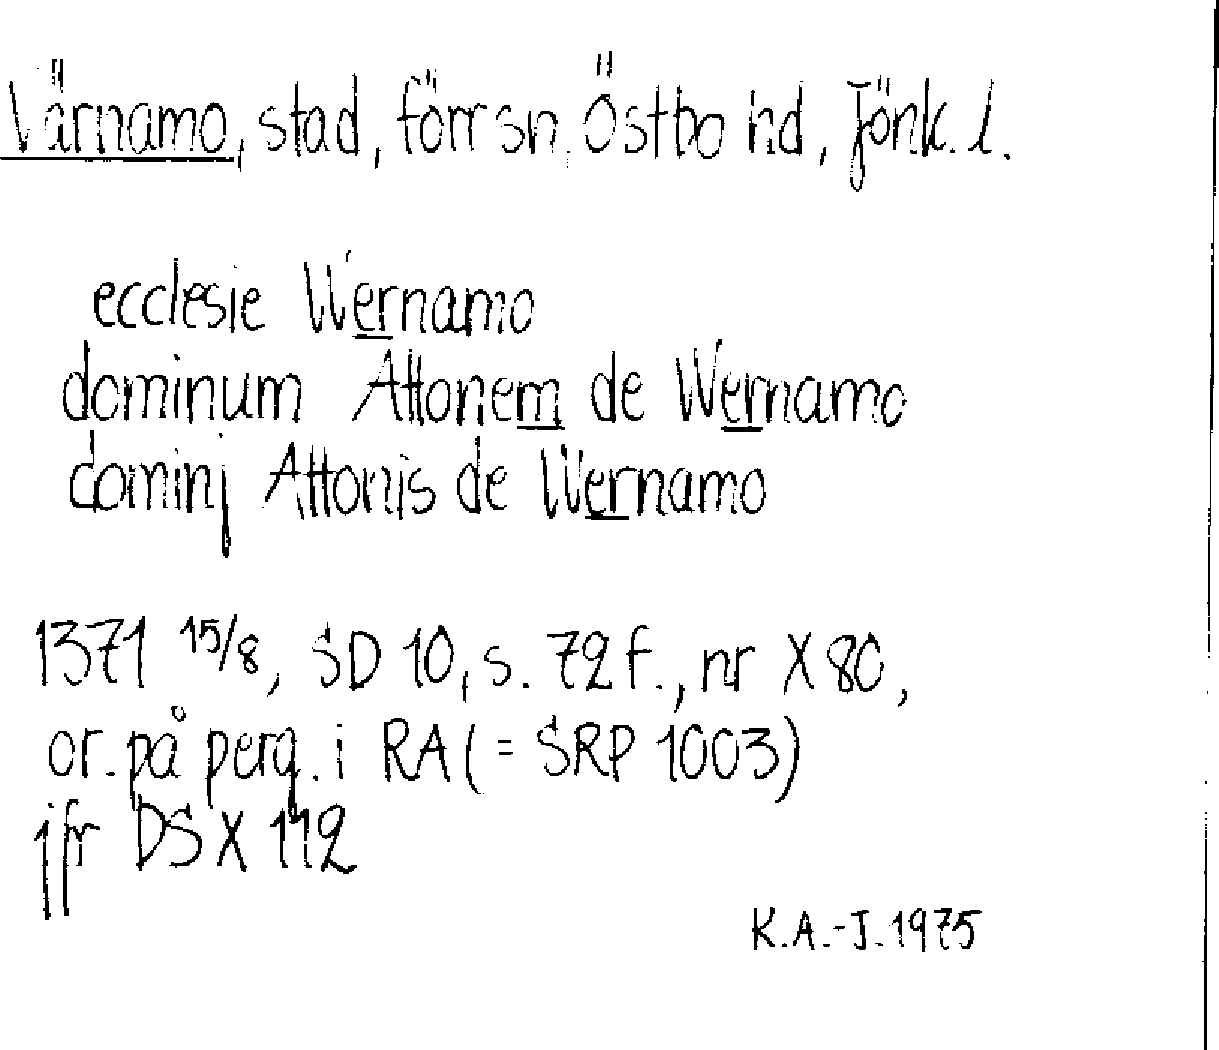 Värnamo, stad, förr sn. Östbo hd, Jönk. l.
ecclesie Wernamo
dominum Attonem de Wernamo
dominj Attonis de Wernamo
1371 15/8, SD 10, s. 72 f., nr X 80,
or. på perg. i RA (= SRP 1003)
jfr DS X 112
K.A.-J. 1975